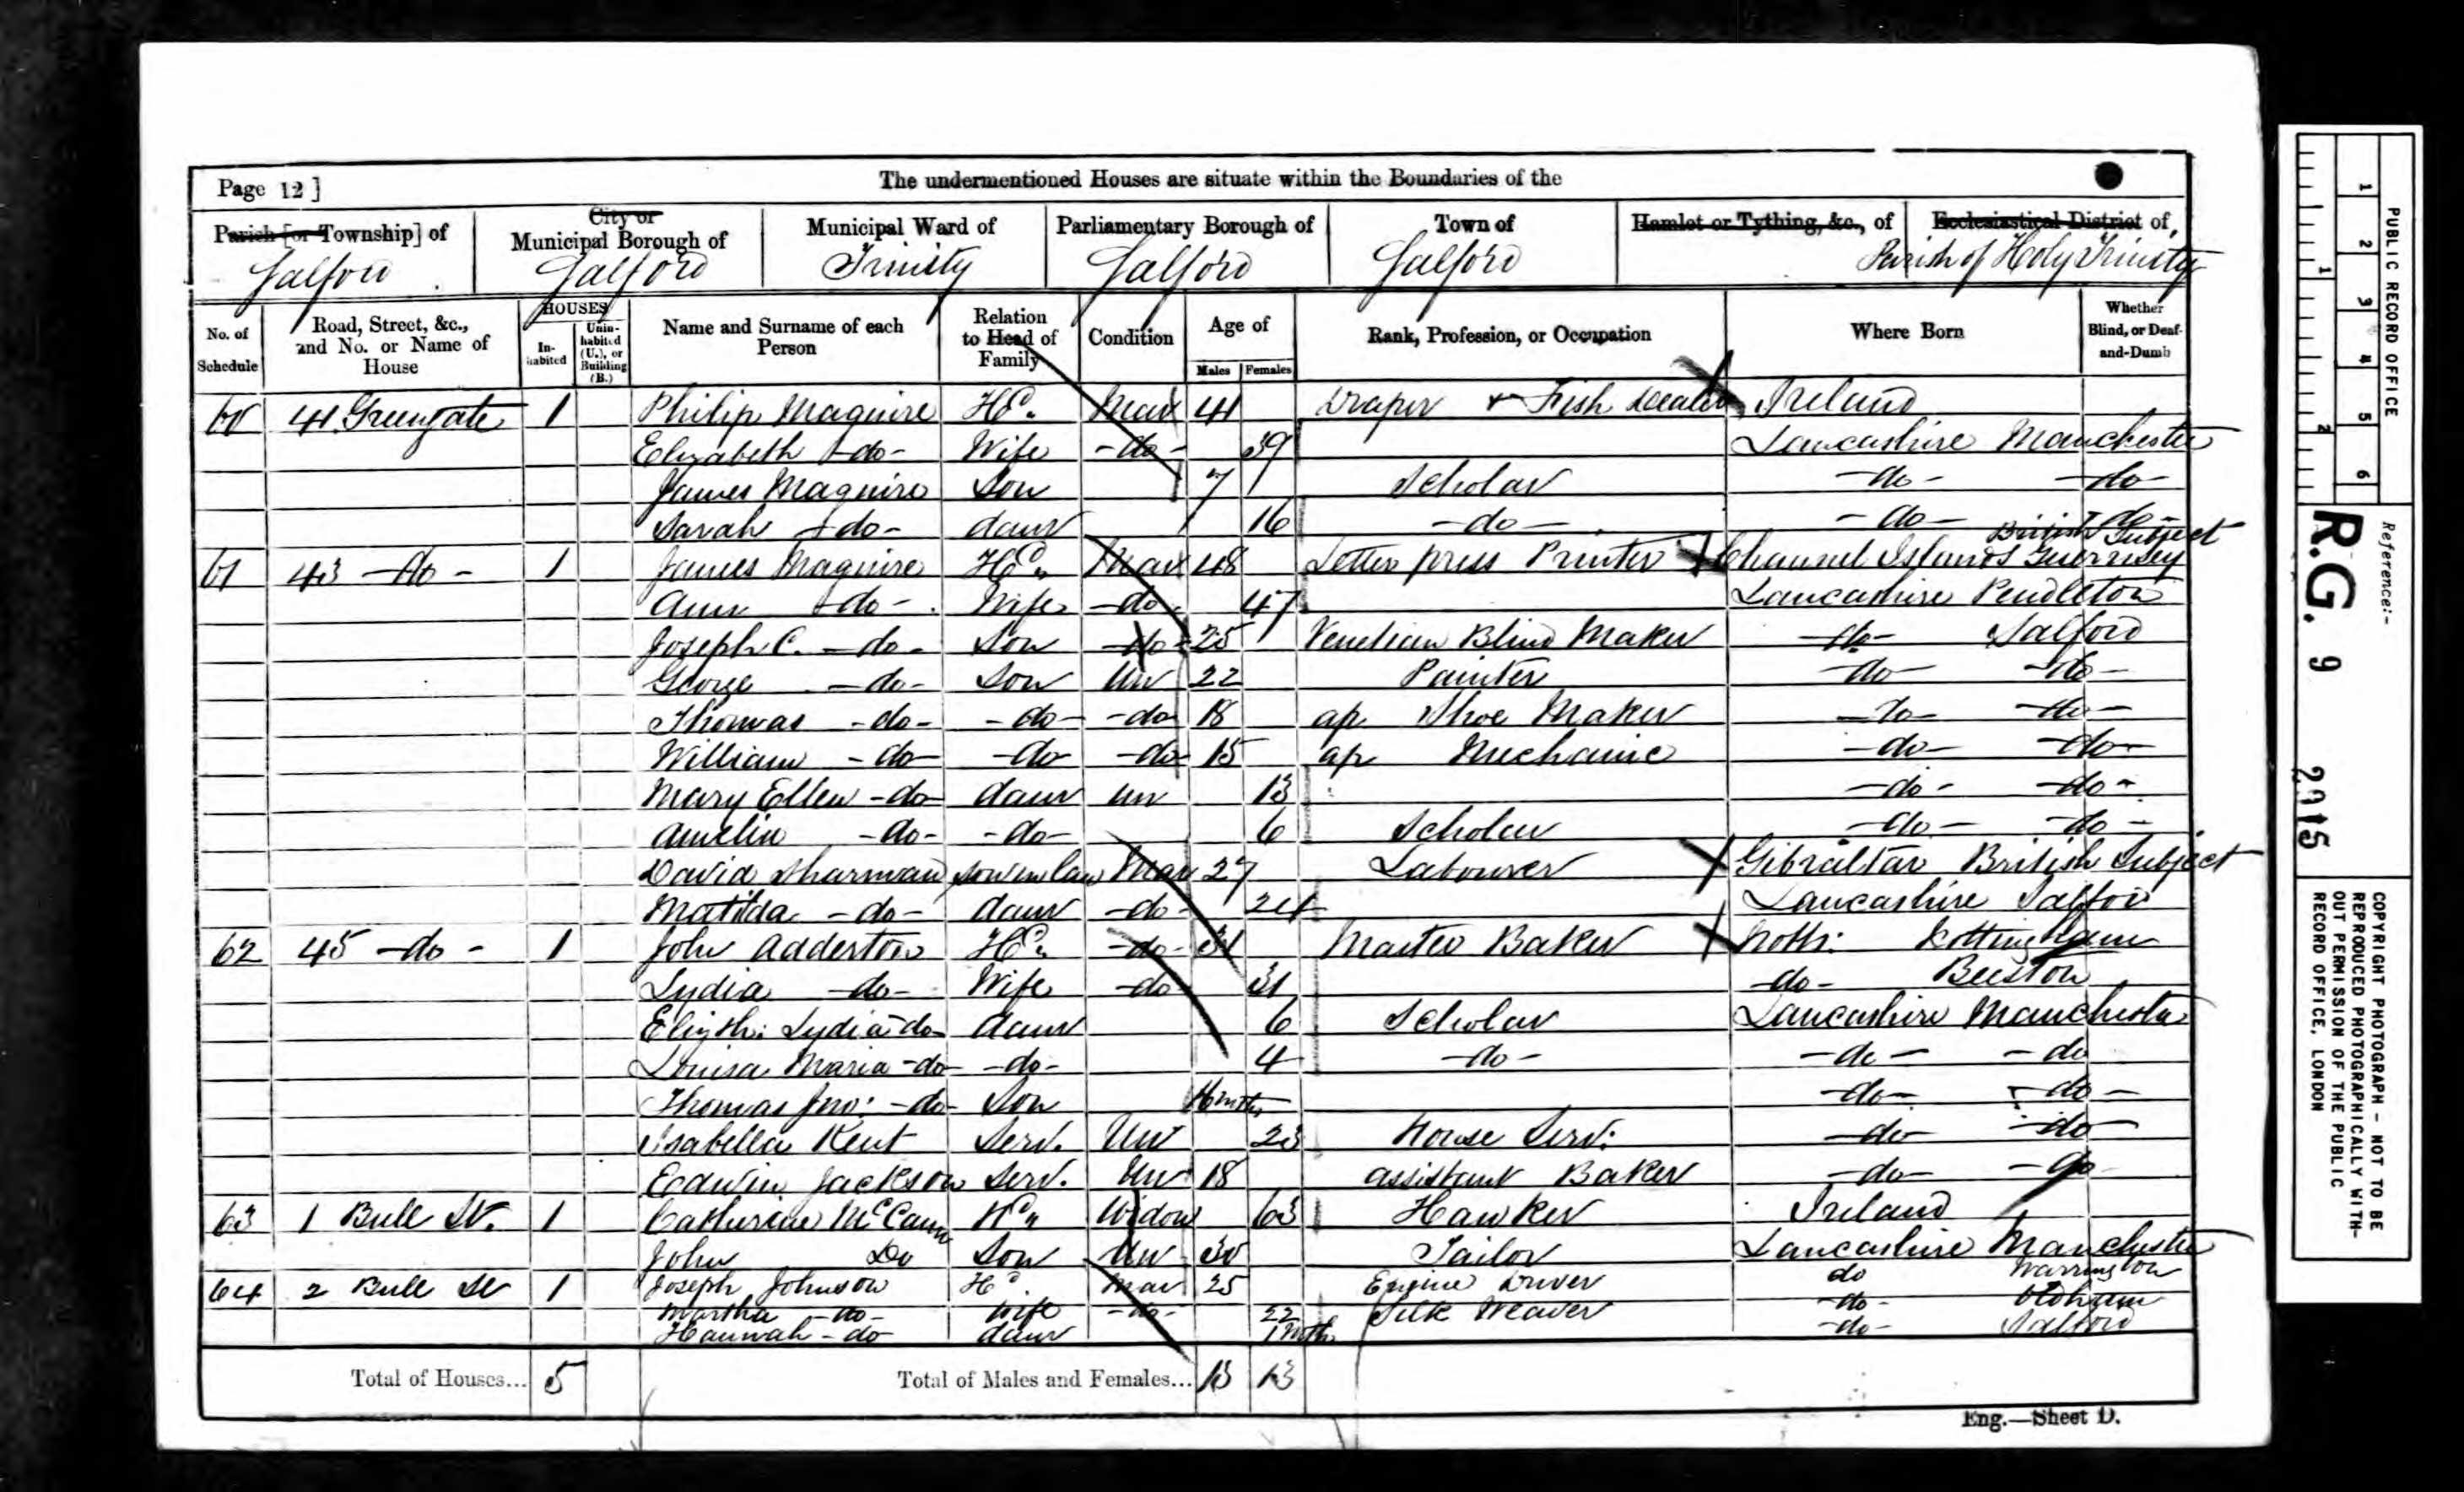 Page 12 ]
The undermentioned Houses are situate within the Boundaries of the
Parish [or Township] of
City or Municipal Borough of
Municipal Ward of
Parliamentary Borough of
Town of
Hamlet or Tything, &c., of
Ecclesiastical District of
Salford Salford Trinity Salford Salford Parish of Holy Trinity
No. of Schedule
Road, Street, &c., and No. or Name of House
HOUSES
In-habited
Unin-habited (U.), or Building (B.)
Name and Surname of each Person
Relation to Head of Family
Condition
Age of
Males
Females
Rank, Profession, or Occupation
Where Born
Whether Blind, or Deaf-and-Dumb
60 41 Greengate 1 Philip Maguire Hd. Mar 41 Draper & Fish Dealer Ireland
Elizabeth -do- Wife -do- 39 Lancashire Manchester
James Maguire Son 7 Scholar -do- -do-
Sarah -do- daur 16 -do- -do- -do-
British Subject
61 43 -do- 1 James Maguire Hd. Mar 48 Letter press Printer Channel Islands Guernsey
Ann -do- Wife -do- 47 Lancashire Pendleton
Joseph C. -do- Son -do- 25 Venetian Blind Maker -do- Salford
George -do- Son Un 22 Painter -do- -do-
Thomas -do- -do- -do- 18 ap Shoe Maker -do- -do-
William -do- -do- -do- 15 ap Mechanic -do- -do-
Mary Ellen -do- daur Un 13 -do- -do-
Amelia -do- -do- 6 Scholar -do- -do-
David Sharman Son in law Mar 27 Labourer Gibraltar British Subject
Matilda -do- daur -do- 24 Lancashire Salford
62 45 -do- 1 John Adderton Hd. -do- 31 Master Baker Notts:
Lydia -do- Wife -do- 31 -do- Beeston
Elizth: Lydia -do- daur 6 Scholar Lancashire Manchester
Louisa Maria -do- -do- 4 -do- -do- -do-
Thomas Jno: -do- Son -do- -do-
Isabella Kent Serv. Un 23 House Serv: -do- -do-
Edwin Jackson Serv. Un 18 assistant Baker -do- -do-
63 1 Bull St. 1 Catherine McCann Hd. Widow 63 Hawker Ireland
John Do Son Un 30 Tailor Lancashire Manchester
64 2 Bull St 1 Joseph Johnson Hd Mar 25 Engine Driver do Warrington
Martha -do- Wife -do- 22 Silk Weaver -do- Oldham
Hannah -do- daur 1 mth -do- Salford
Total of Houses... 5 Total of Males and Females... 13 13
Eng.—Sheet D.
PUBLIC RECORD OFFICE
1 2 3 4 5 6
1 2
Reference:-
R.G. 9
COPYRIGHT PHOTOGRAPH - NOT TO BE
REPRODUCED PHOTOGRAPHICALLY WITH-
OUT PERMISSION OF THE PUBLIC
RECORD OFFICE, LONDON